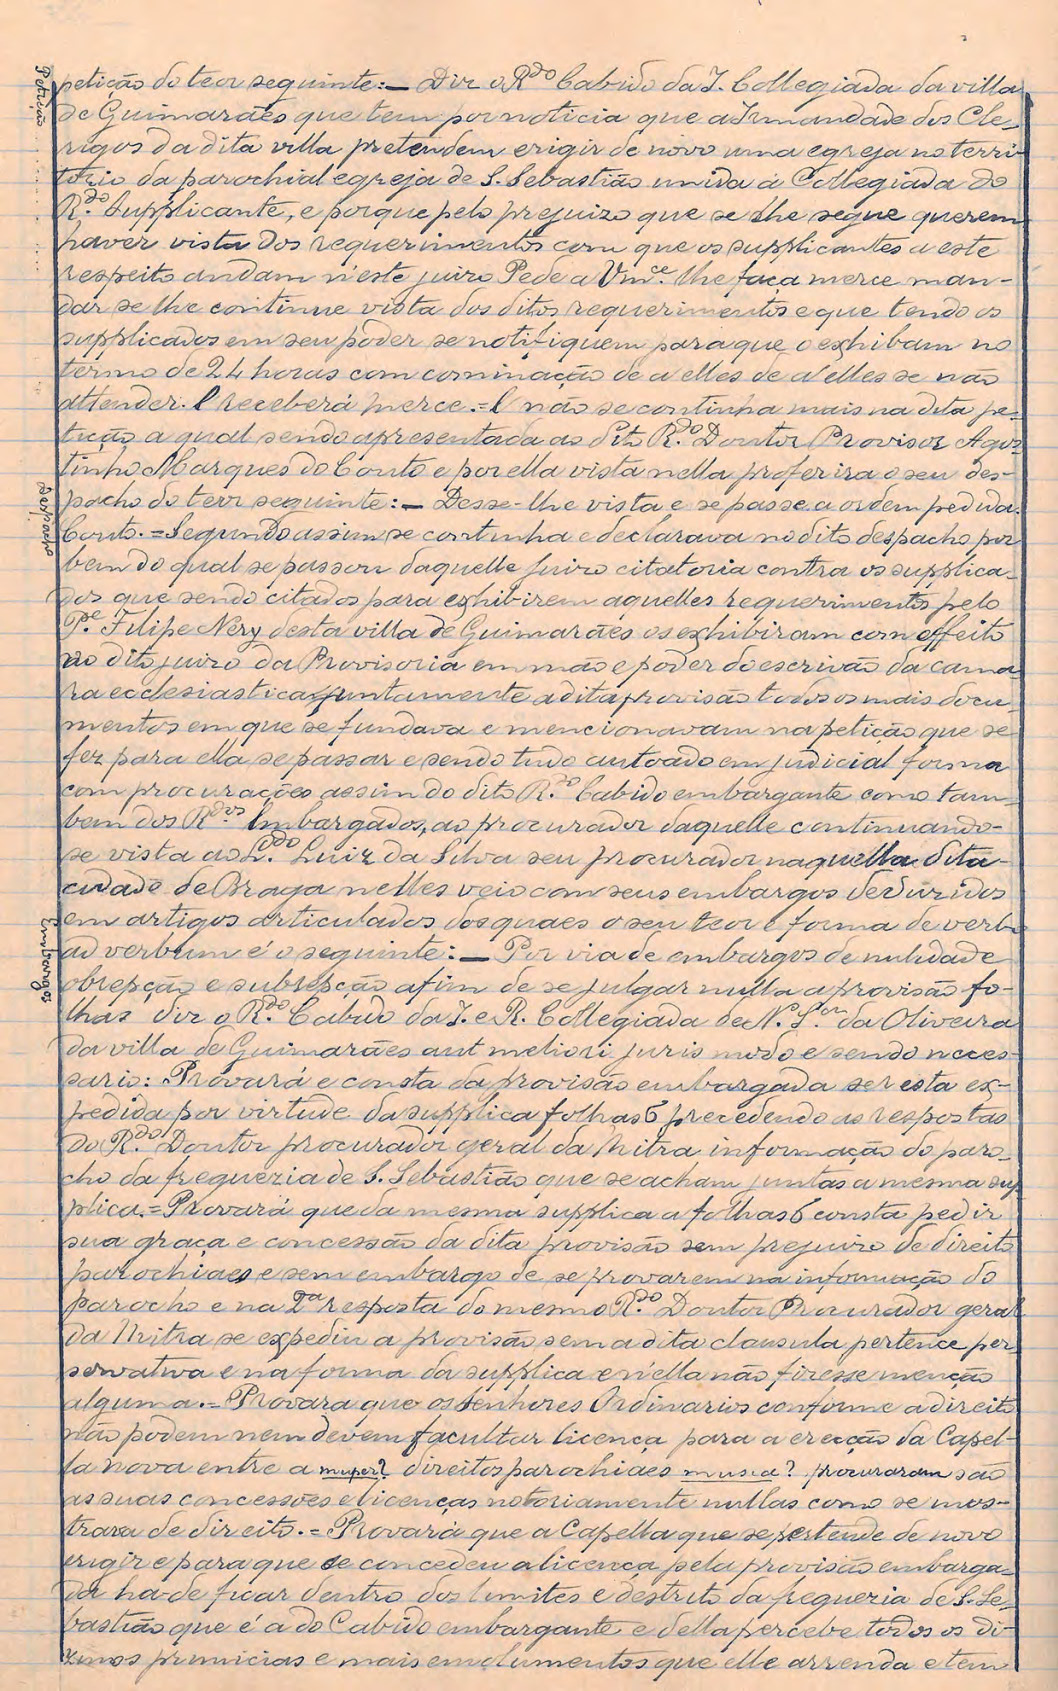 Petição
petição do teor seguinte:— Diz o R.do Cabido da I. Collegiada da villa
de Guimarães que tem por noticia que a Irmandade dos Cle-
rigos da dita villa pretendem erigir de novo uma egreja no terri-
torio da parochial egreja de S. Sebastião unida á Collegiada do
R.do Supplicante, e porque pelo prejuizo que se lhe segue querem
haver vista dos requerimentos com que os supplicantes a este
respeito andam n'este juizo Pede a Vm.ce lhe faça merce man-
dar se lhe continue vista dos ditos requerimentos e que tendo os
supplicados em seu poder se notifiquem para que o exhibam no
termo de 24 horas com cominação de a elles de a elles se não
attender. E receberá merce.=E não se continha mais na dita pe-
tição a qual sendo apresentada ao dito R.do Doutor Provisor Agos-
tinho Marques do Couto e por ella vista nella proferira o seu des-
Despacho
pacho do teor seguinte:— Desse-lhe vista e se passe a ordem pedida.
Couto.=Segundo assim se continha e declarava no dito despacho por
bem do qual se passou daquelle juizo citatoria contra os supplica-
dos que sendo citados para exhibirem aquelles requerimentos pelo
P.e Filipe Nery desta villa de Guimarães os exhibiram com effeito
no dito juizo da Provisoria em mão e poder do escrivão da cama-
ra ecclesiastica juntamente a dita provisão todos os mais docu-
mentos em que se fundava e mencionavam na petição que se
fez para ella se passar e sendo tudo autoado em judicial forma
com procurações assim do dito R.do Cabido embargante como tam-
bem dos R.dos Embargados, ao procurador daquelle continuando-
se vista ao L.do Luiz da Silva seu procurador naquella dita
cidade de Braga nelles veio com seus embargos deduzidos
Embargos
em artigos articulados dos quaes o seu teor e forma de verbo
ad verbum é o seguinte:— Por via de embargos de nulidade
obrepção e subrepção afim de se julgar nulla a provisão fo-
lhas diz o R.do Cabido da I. e R. Collegiada de N. S.ra da Oliveira
da villa de Guimarães aut meliori juris modo e sendo neces-
sario: Provará e consta da provisão embargada ser esta ex-
pedida por virtude da supplica folhas 6 precedendo as respostas
do R.do Doutor procurador geral da Mitra informação do paro-
cho da freguezia de S. Sebastião que se acham juntas a mesma sup-
plica.=Provará que da mesma supplica a folhas 6 consta pedir
sua graça e concessão da dita provisão sem prejuizo de direito
parochiaes e sem embargo de se provarem na informação do
parocho e na 2ª resposta do mesmo R.do Doutor Procurador geral
da Mitra se expediu a provisão sem a dita clausula pertence per
servativa e na forma da supplica e n'ella não fizesse menção
alguma.=Provara que os Senhores Ordinarios conforme a direito
não podem nem devem facultar licença para a erecção da Capel-
la nova entre a muper? direitos parochiaes musca? procuraram são
as suas concessões e licenças notoriamente nullas como se mos-
trara de direito.=Provará que a Capella que se pertende de novo
erigir e para que se concedeu a licença pela provisão embarga-
da ha-de ficar dentro dos limites e destrito da freguezia de S. Se-
bastião que é a do Cabido embargante e della percebe todos os di-
zimos primicias e mais emolumentos que elle arrenda e tem